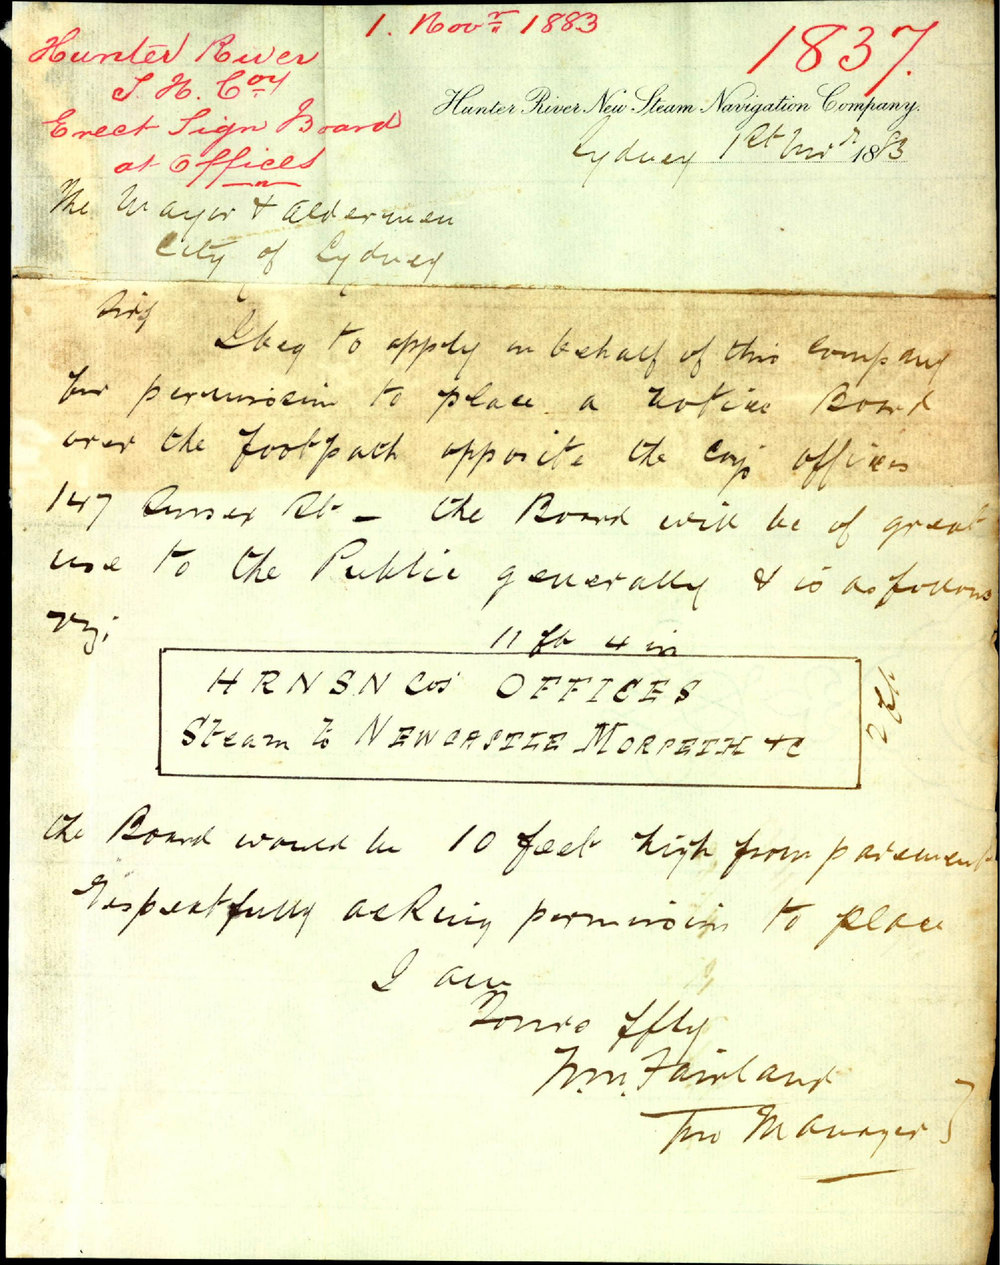 1. Novr 1883
1837.
Hunter River
S. N. Coy
Erect Sign Board
at Offices
Hunter River New Steam Navigation Company.
Sydney 1st Novr 1883
The Mayor & Aldermen
City of Sydney
Sirs
I beg to apply on behalf of this Company
for permission to place a notice Board
over the footpath opposite the Coys offices
147 Sussex St - the Board will be of great
use to the Public generally & is as follows
viz;
11 ft 4 in
HRNSN Cos OFFICES
Steam to NEWCASTLE MORPETH &C
2 ft
the Board would be 10 feet high from pavement
Respectfully asking permission to place
I am
Yours ffly
Wm. Fairland
Pro Manager